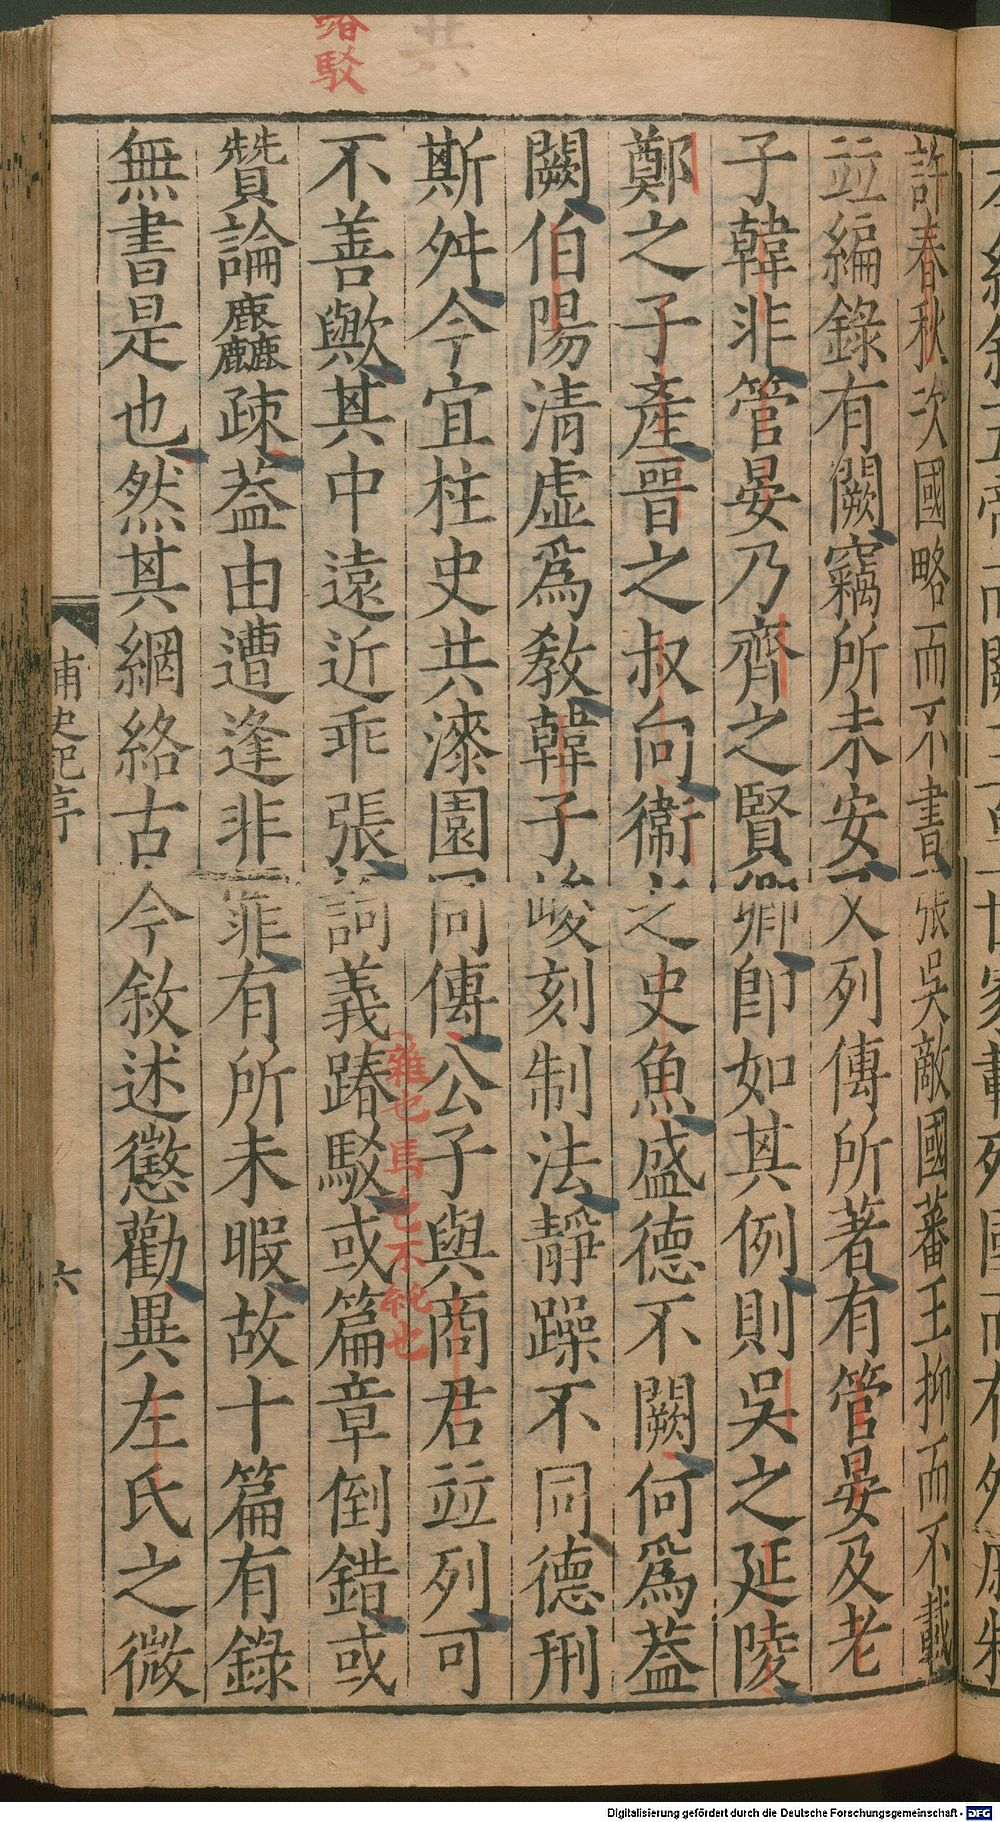 許春秋次國略而不書張吳敵國蕃王抑而不載
竝編錄有闕竊所未安又列傳所著有管晏及老
子韓非管晏乃齊之賢卿卽如其例則吳之延陵
鄭之子產晉之叔向衞之史魚盛德不闕何爲蓋
闕伯陽清虛爲教韓子峻刻制法靜躁不同德刑
斯舛今宜柱史共漆園同傳公子與商君竝列可
不善歟其中遠近乖張詞義踳駁或篇章倒錯或
贊論麤疎蓋由遭逢非罪有所未暇故十篇有錄
無書是也然其網絡古今敘述懲勸異左氏之微
駁
雜也馬色不純也
補史記序
六
Digitalisierung gefördert durch die Deutsche Forschungsgemeinschaft - DFG